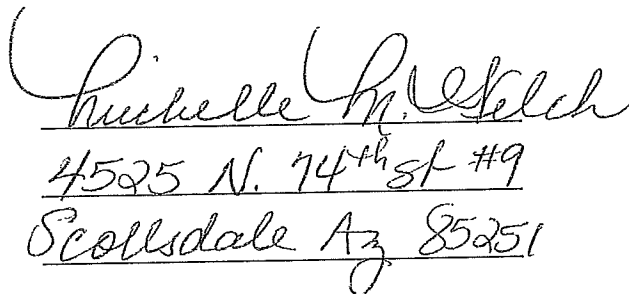 Michelle M. Welch
4525 N. 74th St #9
Scottsdale Az 85251